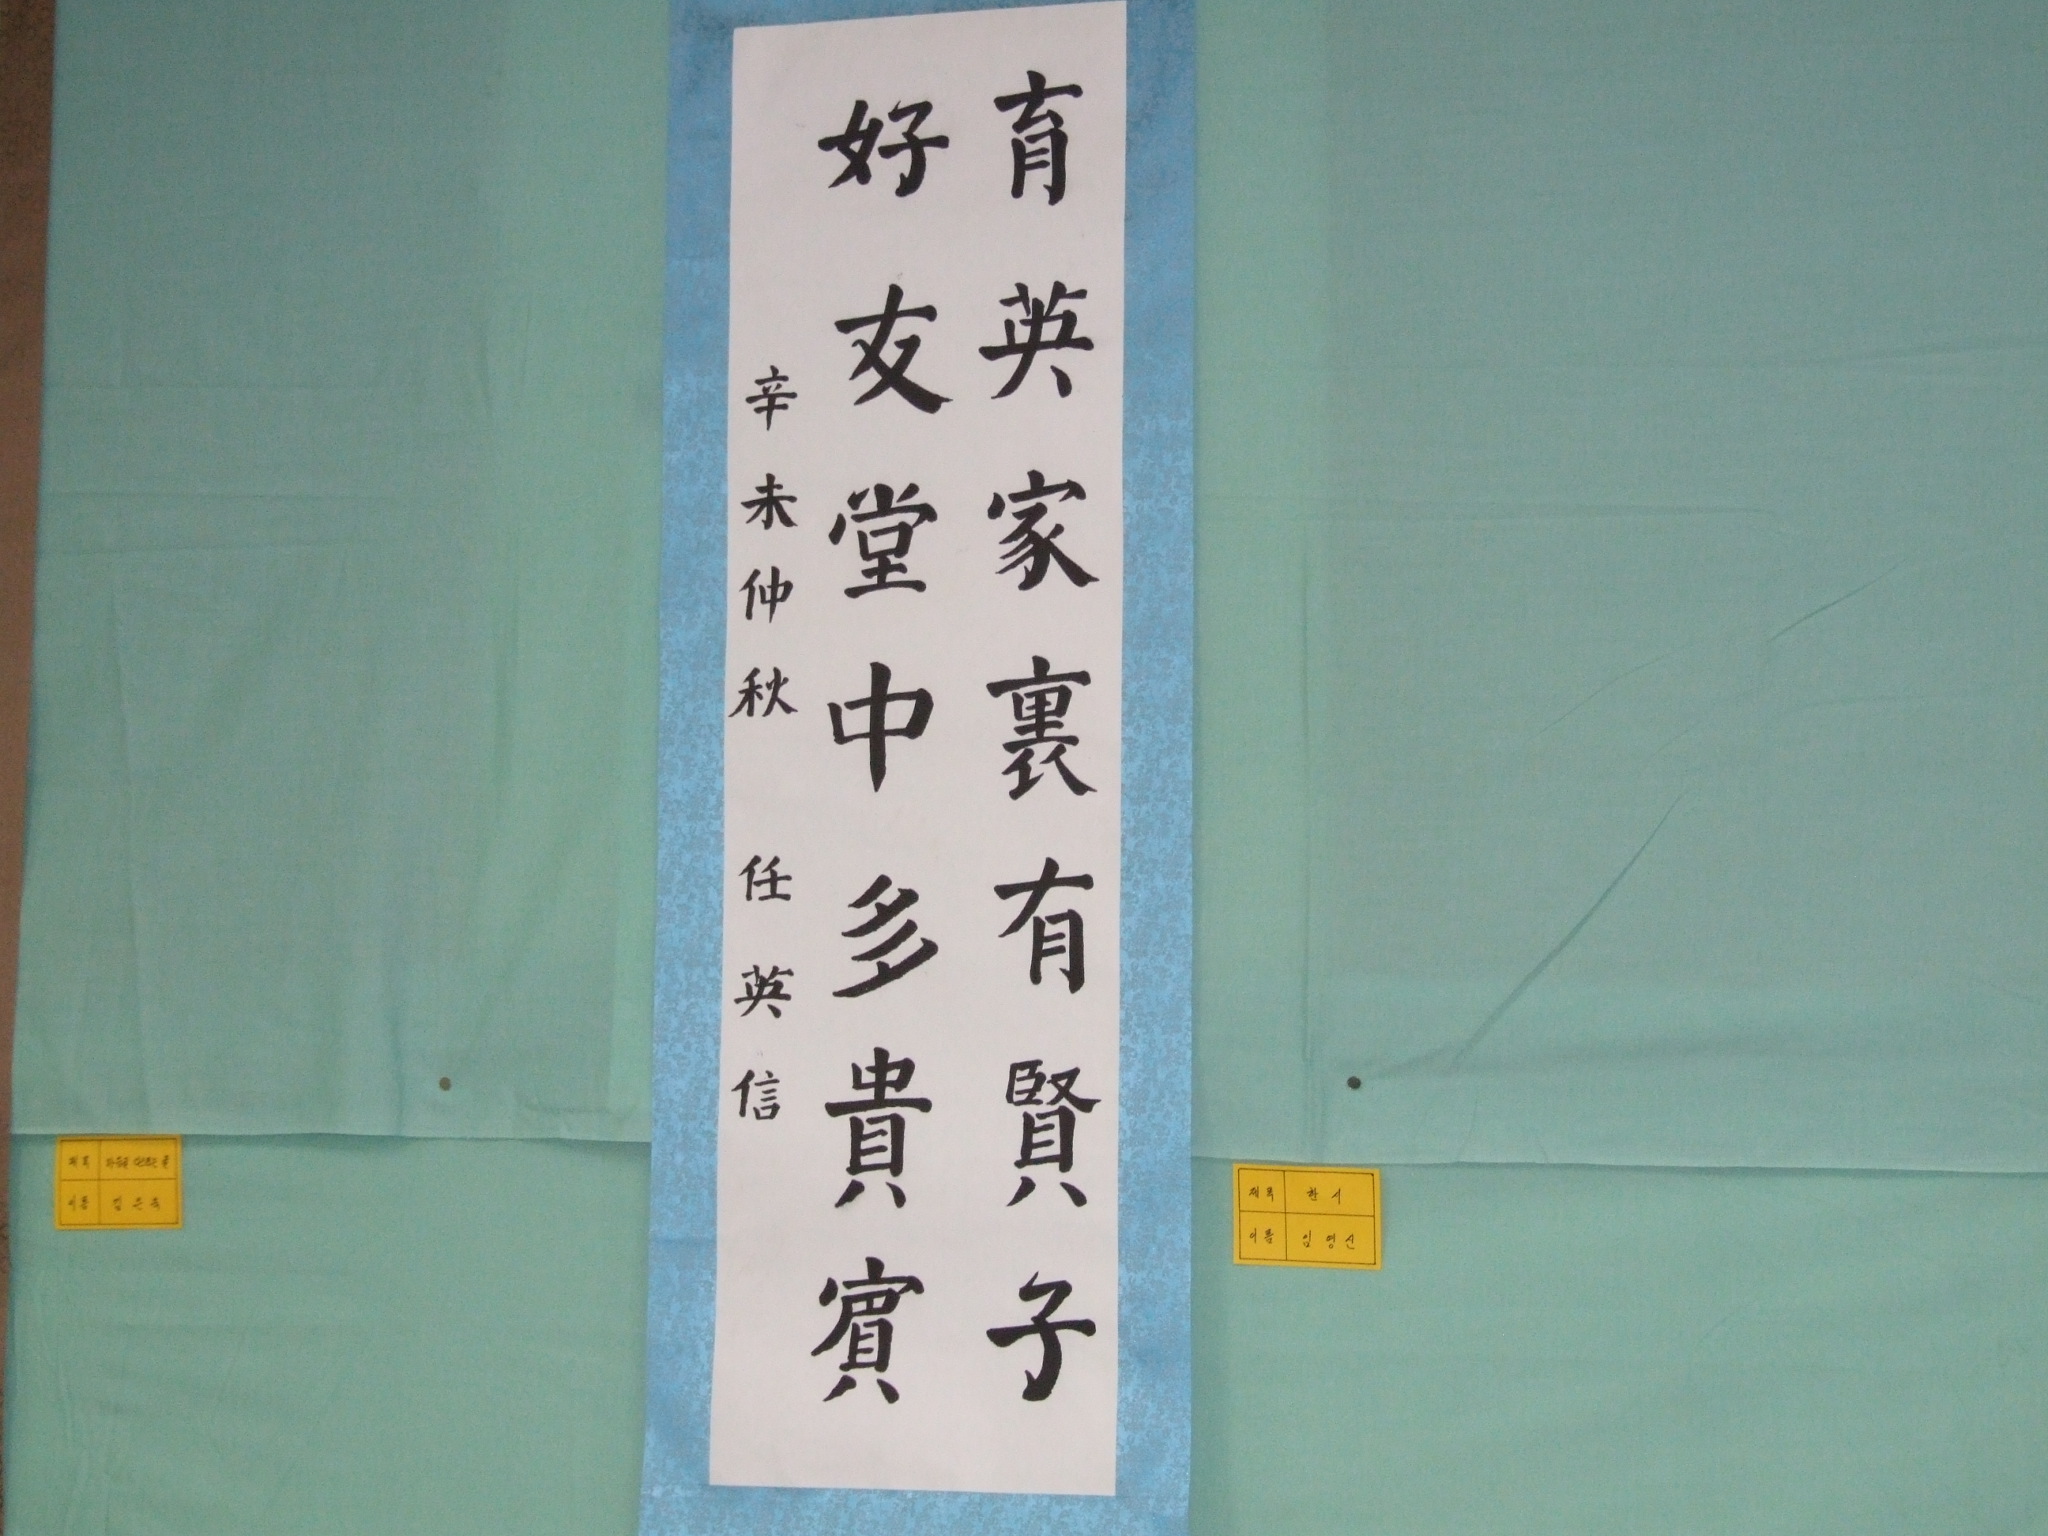 育英家裏有賢子
好友堂中多貴賓
辛未仲秋 任英信
제목 한시
이름 임영신
제목
이름 김은숙